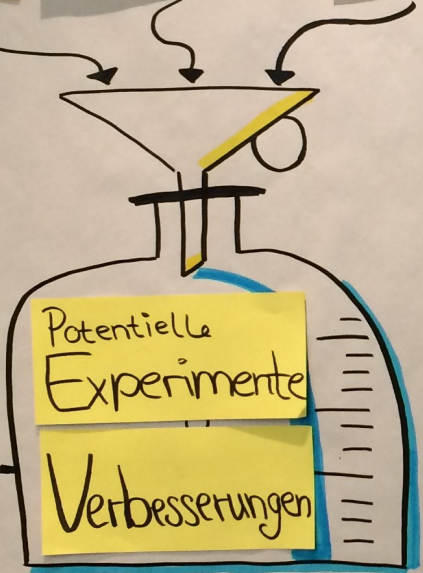 Potentielle
Experimente
Verbesserungen